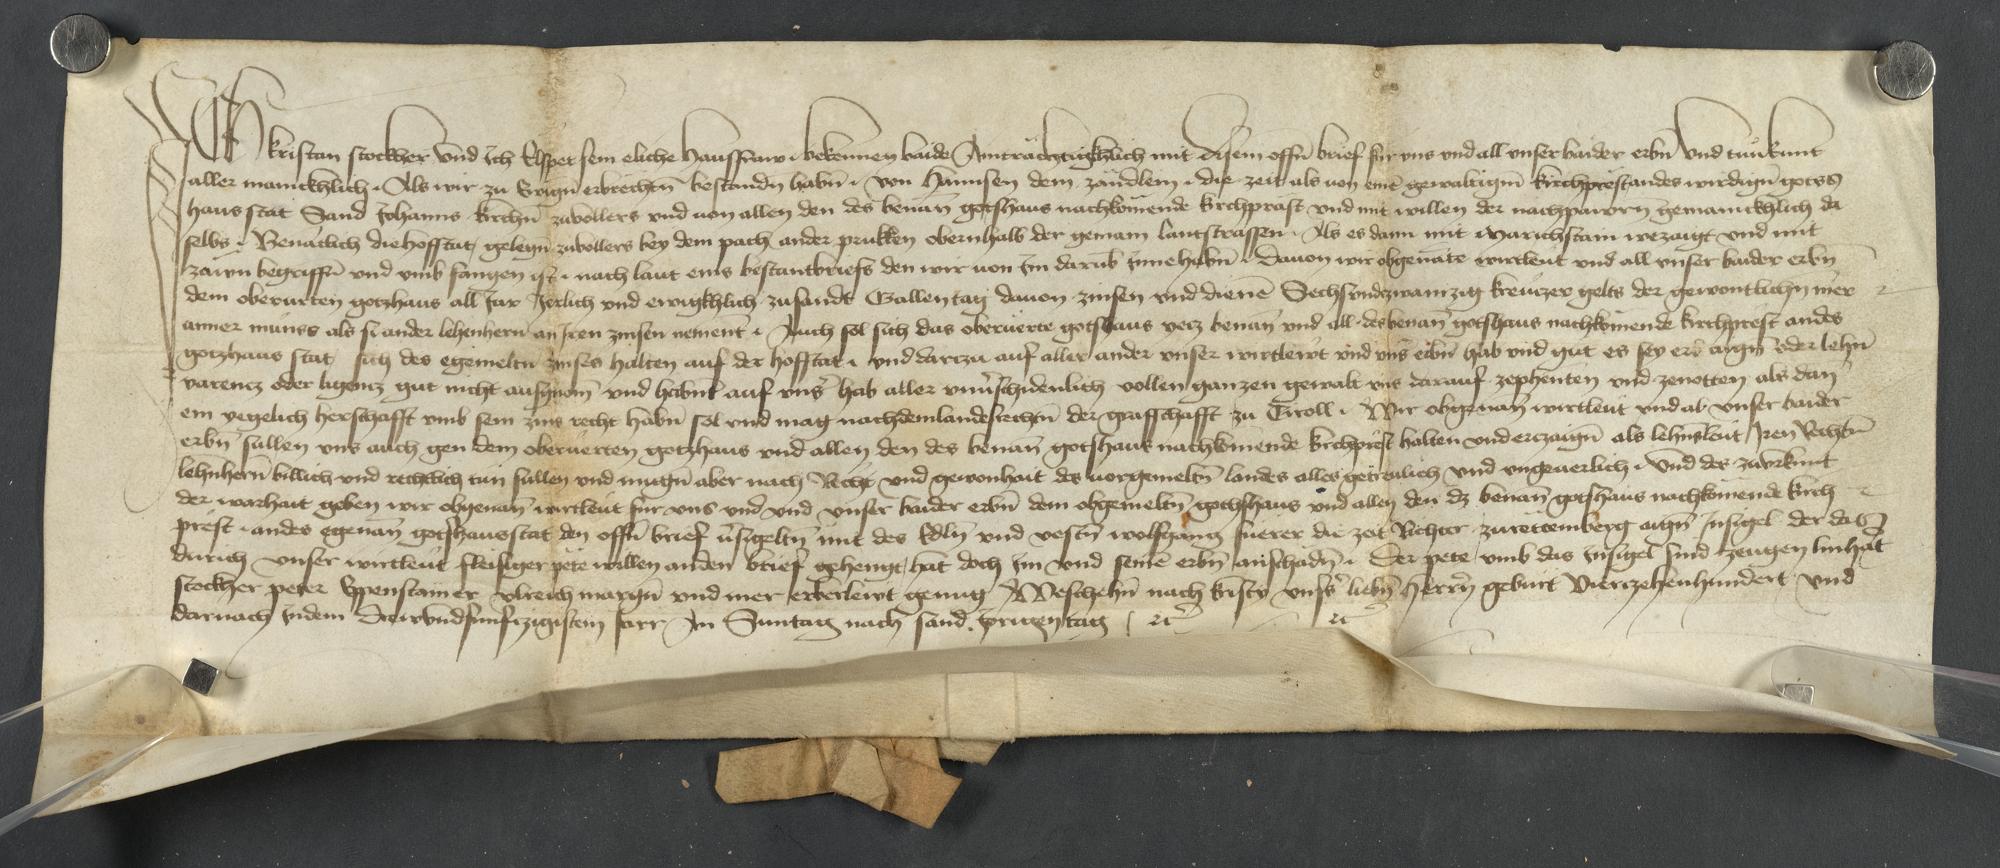 Ich kristan stockher vnd ich Elspet sein eliche hausfraw bekennen baide Ainträchtigkhlich mit disem offn̄ brief fur vns vnd all vnser baider erbn̄ vnd tun kunt
aller manickhlich Als wir zu Ewign̄ erbrechtn̄ bestandn̄ habn̄ von Hannsen dem zändlem die zeit als von eim̄ gewaltign̄ kirchprestandes wirdign̄ gotss
haus stat Sand Johanns kirchn̄ zuvollers vnd von allen den des benan̄ gotshaus nachkom̄ende kirchpräst vnd mit willen der nachpawrn gemanickhlich da
selbs Benātlich die hofstat gelegn̄ zuvollers bey dem pach ander prukken obernhalb der gemain lantstrassen Als es dann mit marichstain wezaigt vnd mit
zäwn begriffn̄ vnd vmb fangen ist nach laut eins bestantbriefs den wir von Im darūb Inne habn̄ dauon wir obgenāte wirtleut vnd all vnser baider erbn̄
dem oberurten gotzhaus all Jar Jerlich vnd ewigkhlich zu sandt Gallen tag dauon zinsen vnd dienē Sechsvndzwainzig kreuczer gelts der gewontlichn̄ mer
aimer münss als si ander lehenhern an Iren zinsen nement Auch sol sich das oberuerte gotshaus yecz benan̄ vnd all des benan̄ gotshaus nachkom̄ende kirchprest andes
gotzhaus stat sich des egemeltn̄ zinses halten auf der hofstat vnd darczu auf aller ander vnser wirtlewt vnd vns̄ erbn̄ hab vnd gut es sey erb aign̄ oder lehn̄
varencz oder ligencz gut nicht ausgnom̄ vnd habnt auf vns̄ hab aller vnu̇schidenlich vollen ganzen gewalt vns darauf zephenten vnd zenotten als dan̄
ein yegelich herschafft vmb sein zins recht habn̄ sol vnd mag nachdemlandesrechtn̄ der grafschafft zu Tiroll Wir obgenan̄ wirtleut vnd al vnser baider
erbn̄ sullen vns auch gen dem oberuerten gotzhaus vnd allen den des benan̄ gotshaus nachkom̄ende kirchprest halten vnd erczaign̄ als lehnsleut Iren Rechtn̄
lehnhern billich vnd rechtlich tun sullen vnd mugn̄ aber nach Recht vnd gewonhait des uorgemeltn̄ landes alles getrewlich vnd vngeuerlich vnd des zuvrkunt
der warhait geben wir obgenan̄ wirtleut fur vns vnd vnd vnser baider erbn̄ dem obgemeltn̄ gothshaus vnd allen den dz benan̄ gotshaus nachkom̄ende kirch
prest andes egenan̄ gotshausstat den offn̄ brief v̄sigeltn̄ mit des Edln̄ vnd vestn̄ wolfgang fuerer die zeit Richter zurettemberg aign̄ Insigel der das
durich vnser wirtleut fleissiger pete willen anden brief gehengt hat doch Im vnd seinē erbn̄ anschadn̄ Der pete vmb das Insigel sind zeugen linhart
stockher peter Eppenstainer vlreich margn̄ vnd mer erberleut genug Beschehn̄ nach kristy vnsers liebn̄ Herrn geburt vierczehenhundert vnd
darnach Indem Drewvndfunfczigistem Jarr Am Suntag nach sand Jorigen tag